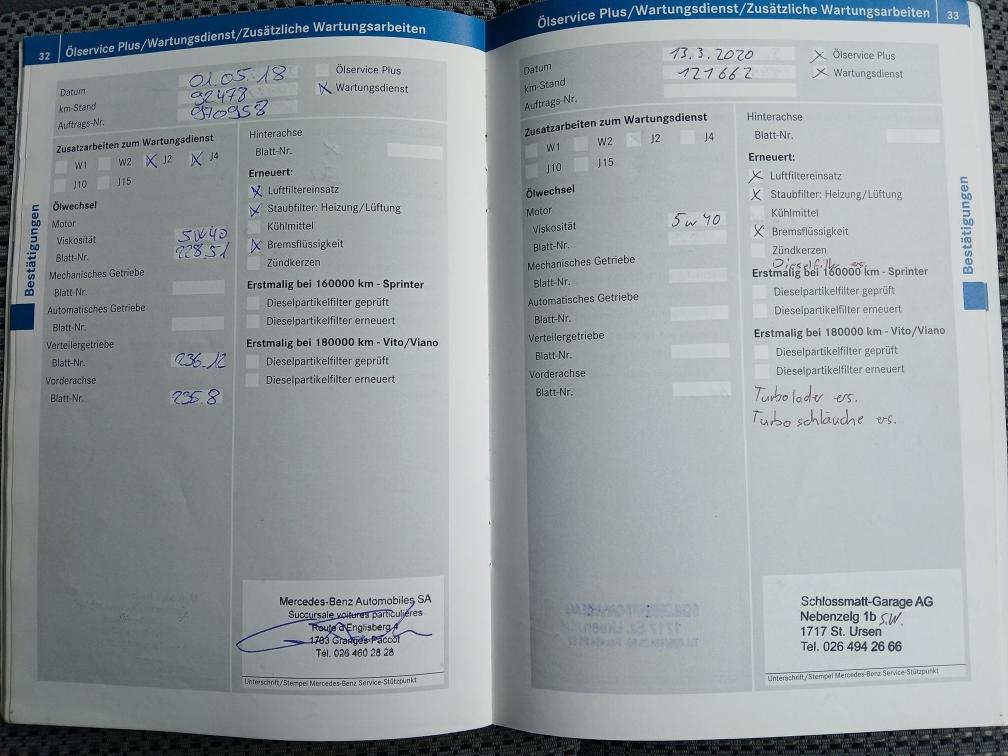 32 Ölservice Plus/Wartungsdienst/Zusätzliche Wartungsarbeiten
Datum 01.05.18
km-Stand 92478
Auftrags-Nr. 970958
Ölservice Plus
X Wartungsdienst
Zusatzarbeiten zum Wartungsdienst
W1 W2 X J2 X J4
J10 J15
Ölwechsel
Motor
Viskosität 5W40
Blatt-Nr. 228.51
Mechanisches Getriebe
Blatt-Nr.
Automatisches Getriebe
Blatt-Nr.
Verteilergetriebe
Blatt-Nr. 236.12
Vorderachse
Blatt-Nr. 235.8
Hinterachse
Blatt-Nr.
Erneuert:
X Luftfiltereinsatz
X Staubfilter: Heizung/Lüftung
Kühlmittel
X Bremsflüssigkeit
Zündkerzen
Erstmalig bei 160000 km - Sprinter
Dieselpartikelfilter geprüft
Dieselpartikelfilter erneuert
Erstmalig bei 180000 km - Vito/Viano
Dieselpartikelfilter geprüft
Dieselpartikelfilter erneuert
Mercedes-Benz Automobiles SA
Succursale voitures particulières
Route d'Englisberg
1763 Granges-Paccot
Tél. 026 460 28 28
Unterschrift/Stempel Mercedes-Benz Service-Stützpunkt
Bestätigungen
Ölservice Plus/Wartungsdienst/Zusätzliche Wartungsarbeiten 33
Datum 13.3.2020
km-Stand 121662
Auftrags-Nr.
X Ölservice Plus
X Wartungsdienst
Zusatzarbeiten zum Wartungsdienst
W1 W2 J2 J4
J10 J15
Ölwechsel
Motor
Viskosität 5w40
Blatt-Nr.
Mechanisches Getriebe
Blatt-Nr.
Automatisches Getriebe
Blatt-Nr.
Verteilergetriebe
Blatt-Nr.
Vorderachse
Blatt-Nr.
Hinterachse
Blatt-Nr.
Erneuert:
X Luftfiltereinsatz
X Staubfilter: Heizung/Lüftung
Kühlmittel
X Bremsflüssigkeit
Zündkerzen
Dieselfilter ers.
Erstmalig bei 160000 km - Sprinter
Dieselpartikelfilter geprüft
Dieselpartikelfilter erneuert
Erstmalig bei 180000 km - Vito/Viano
Dieselpartikelfilter geprüft
Dieselpartikelfilter erneuert
Turbolader ers.
Turboschläuche ers.
Schlossmatt-Garage AG
Nebenzelg 1b S.W.
1717 St. Ursen
Tel. 026 494 26 66
Unterschrift/Stempel Mercedes-Benz Service-Stützpunkt
Bestätigungen